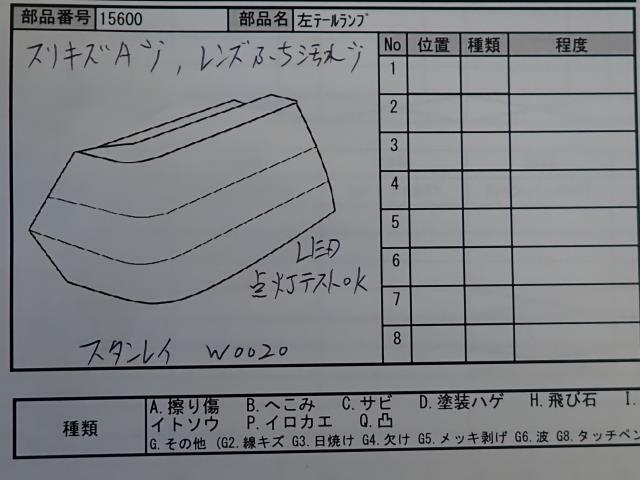 部品番号 15600 部品名 左テールランプ
スリキズAジ, レンズふち汚れジ
No 位置 種類 程度
1
2
3
4
5
6
7
8
LED
点灯テストOK
スタンレイ W0020
種類
A.擦り傷 B.へこみ C.サビ D.塗装ハゲ H.飛び石 I.
イトソウ P.イロカエ Q.凸
G.その他 (G2.線キズ G3.日焼け G4.欠け G5.メッキ剥げ G6.波 G8.タッチペン